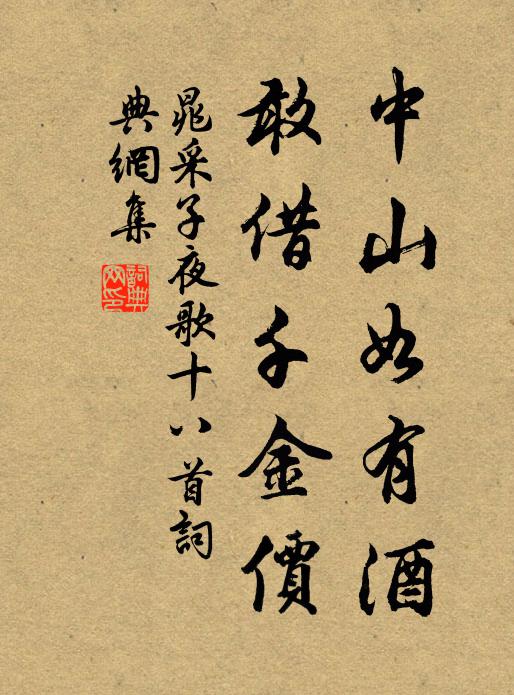 中山如有酒
敢借千金價
晁采子夜歌十八首詞
典網集
詞典
网印